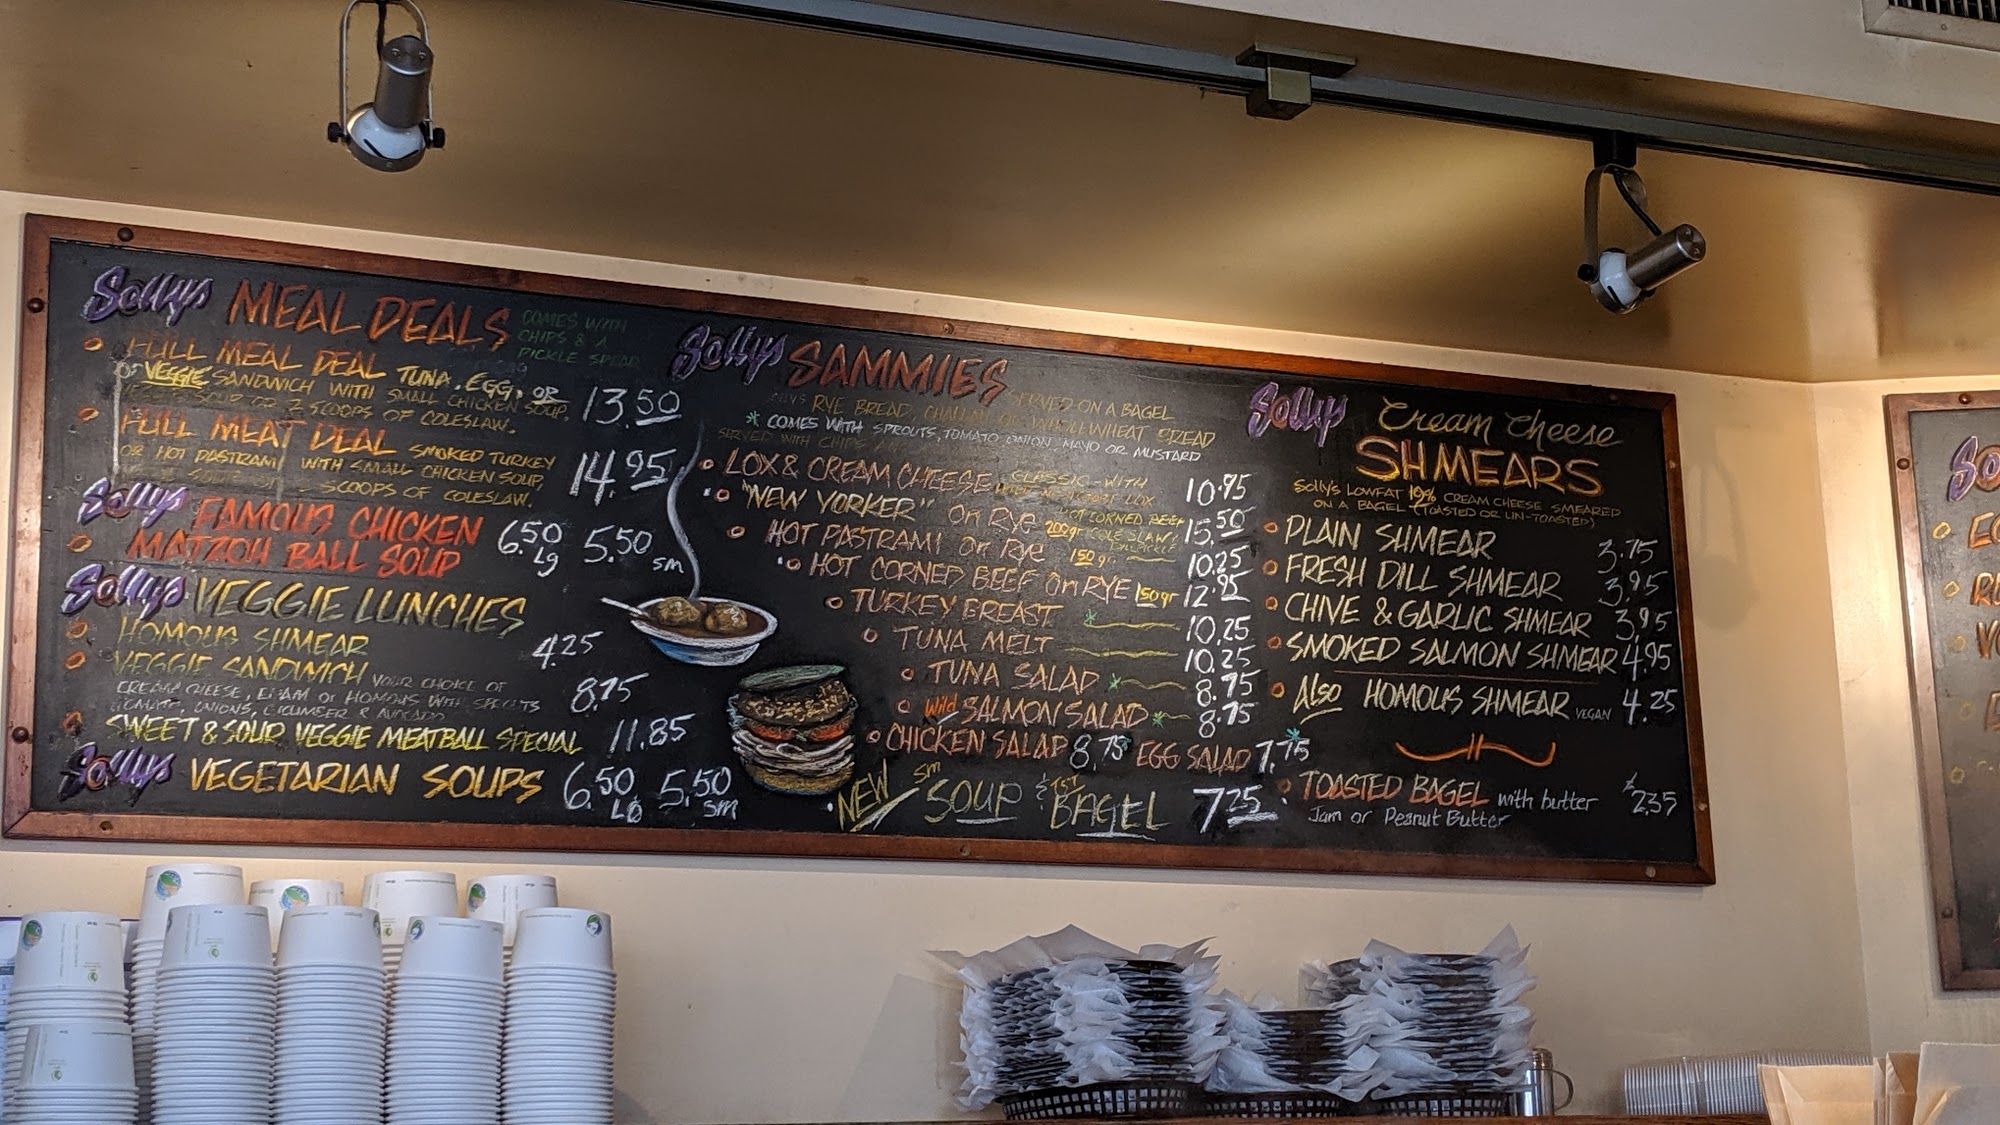 Sollys MEAL DEALS COMES WITH
CHIPS & A
PICKLE SPEAR
FULL MEAL DEAL TUNA, EGG, OR
or VEGGIE SANDWICH WITH SMALL CHICKEN SOUP, 13.50
SOUP OR 2 SCOOPS OF COLESLAW.
FULL MEAT DEAL SMOKED TURKEY
OR HOT PASTRAMI WITH SMALL CHICKEN SOUP, 14.95
SCOOPS OF COLESLAW.
Sollys FAMOUS CHICKEN
MATZOH BALL SOUP 6.50 Lg 5.50 sm
Sollys VEGGIE LUNCHES
HOMOUS SHMEAR 4.25
VEGGIE SANDWICH YOUR CHOICE OF
CREAM CHEESE, or HOMOUS WITH SPROUTS 8.75
TOMATO, ONIONS, CUCUMBER & AVOCADO
SWEET & SOUR VEGGIE MEATBALL SPECIAL 11.85
Sollys VEGETARIAN SOUPS 6.50 LG 5.50 sm
Sollys SAMMIES SERVED ON A BAGEL
RYE BREAD, CHALLAH OR WHOLEWHEAT BREAD
* COMES WITH SPROUTS, TOMATO, ONION, MAYO OR MUSTARD
SERVED WITH CHIPS
LOX & CREAM CHEESE CLASSIC - WITH
LOX 10.95
"NEW YORKER" On Rye 200gr HOT CORNED BEEF
COLE SLAW 15.50
HOT PASTRAMI On Rye 150gr 10.25
HOT CORNED BEEF On RYE 150gr 12.95
TURKEY BREAST * 10.25
TUNA MELT 10.25
TUNA SALAD * 8.75
Wild SALMON SALAD * 8.75
CHICKEN SALAD 8.75* EGG SALAD 7.75*
NEW sm SOUP & BAGEL 7.25
Sollys Cream Cheese
SHMEARS
Solly's LOWFAT 19% CREAM CHEESE SMEARED
ON A BAGEL (TOASTED OR UN-TOASTED)
PLAIN SHMEAR 3.75
FRESH DILL SHMEAR 3.95
CHIVE & GARLIC SHMEAR 3.95
SMOKED SALMON SHMEAR 4.95
Also HOMOUS SHMEAR VEGAN 4.25
TOASTED BAGEL with butter 2.35
Jam or Peanut Butter